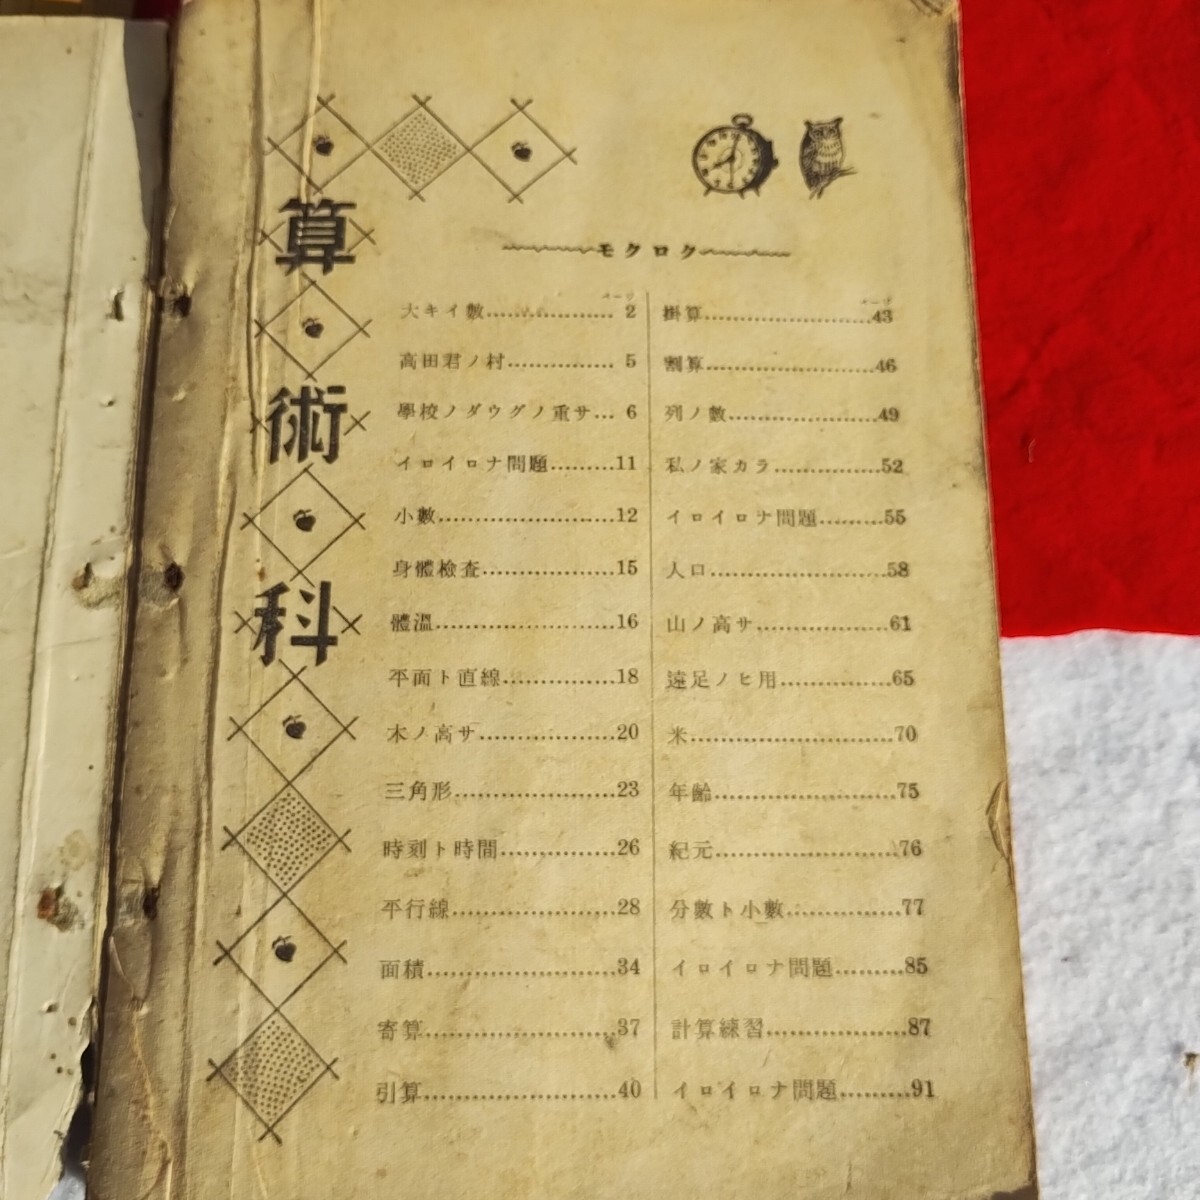 算術科
モクロク
ページ
大キイ數………………2
高田君ノ村……………5
學校ノダウグノ重サ…6
イロイロナ問題………11
小數……………………12
身體檢査………………15
體溫……………………16
平面ト直線……………18
木ノ高サ………………20
三角形…………………23
時刻ト時間……………26
平行線…………………28
面積……………………34
寄算……………………37
引算……………………40
ページ
掛算……………………43
割算……………………46
列ノ數…………………49
私ノ家カラ……………52
イロイロナ問題………55
人口……………………58
山ノ高サ………………61
遠足ノヒ用……………65
米………………………70
年齡……………………75
紀元……………………76
分數ト小數……………77
イロイロナ問題………85
計算練習………………87
イロイロナ問題………91